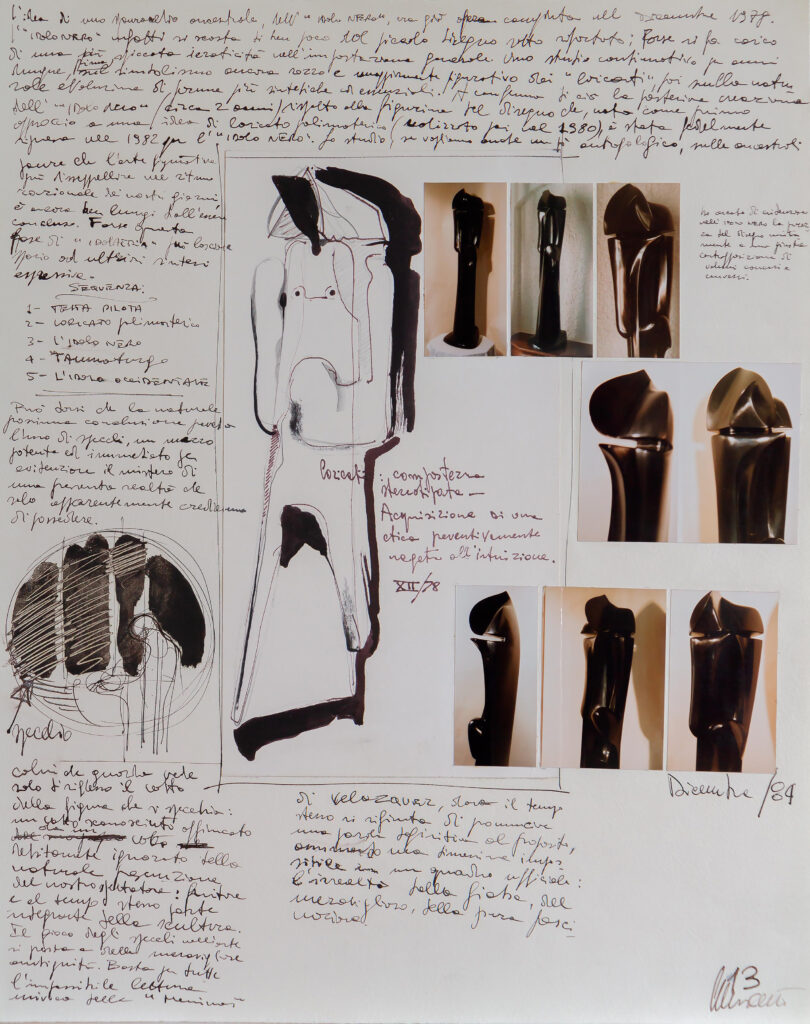 L'idea di uno stereotipo ancestrale, dell'"IDOLO NERO", era già compiuta nel Dicembre 1978.
L'"IDOLO NERO" infatti si scosta di ben poco dal piccolo disegno sotto riportato; Forse si fa carico
di una più spiccata ieraticità nell'impostazione generale. Uno studio continuativo per anni
dunque, sul simbolismo ancora rozzo e figurativo dei "loricati", poi sulla natu
rale evoluzione di forme più sintetiche ed essenziali. A conferma di ciò la posteriore creazione
dell'"IDOLO NERO" (circa 2 anni) rispetto alla figurina del disegno che, nata come primo
approccio a una idea di loricato polimaterico (realizzato poi nel 1980), è stata fedelmente
ripresa nel 1982 per l'"IDOLO NERO". Lo studio (se vogliamo anche un pò antropologico, sulle ancestrali
paure che l'arte figurativa
può seppellire nel ritmo
razionale dei nostri giorni
è ancora ben lungi dall'essere
concluso. Forse questa
fase di "IDOLATRIA" può lasciare
spazio ad ulteriori sintesi
espressive.
SEQUENZA:
1- TESTA PILOTA
2- LORICATO polimaterico
3- L'IDOLO NERO
4- TAUMATURGO
5- L'IDOLO OCCIDENTALE
Può darsi che la naturale
prossima conclusione preveda
l'uso di specchi, un mezzo
potente ed immediato per
evidenziare il mistero di
una presenta realtà che
solo apparentemente crediamo
di possedere.
specchio
Ho cercato di evidenziare
nell'IDOLO NERO la
del disegno
mente a una giusta
contrapposizione di
volumi concavi e
convessi.
loricati: compostezza
stereotipata —
Acquisizione di una
etica preventivamente
negata all'intuizione.
XII/78
Dicembre /84
colui che guarda vede
solo di riflesso il volto
della figura che si specchia:
un volto sconosciuto affiancato
da un volto
ignorato della
naturale percezione
del nostro spettatore: fruitore
e al tempo stesso parte
integrante della scultura.
Il gioco degli specchi nell'arte
si presta a delle meravigliose
ambiguità. Basta per tutte
l'impossibile lettura
univoca della "Meninas"
di Velazquez, dove il tempo
stesso si rifiuta di pronunciare
una parola definitiva al proposito,
una dimensione impos
sibile in un quadro ufficiale:
l'irrealtà della fiaba, del
meraviglioso, della pura fasci
nazione.
13